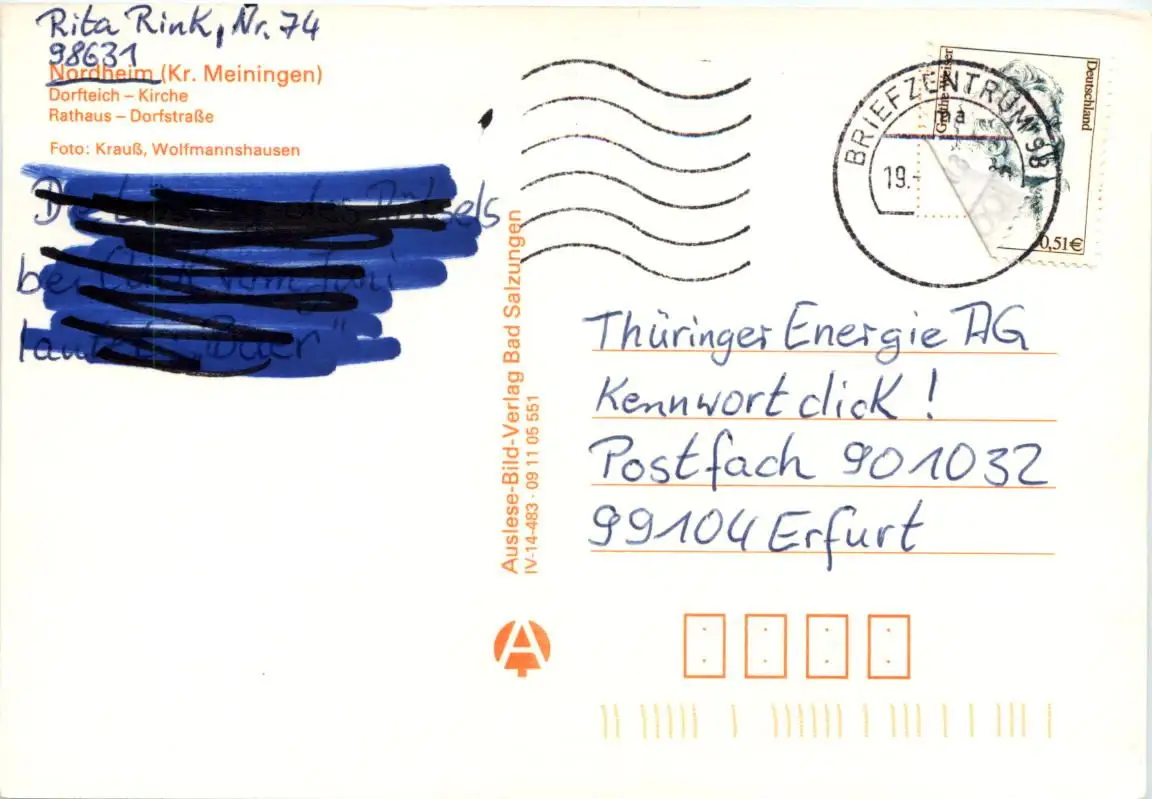 Rita Rink, Nr. 74
98631
Nordheim (Kr. Meiningen)
Dorfteich – Kirche
Rathaus – Dorfstraße
Foto: Krauß, Wolfmannshausen
des Rätsels
bei Click vom Juni
lautet: "
Auslese-Bild-Verlag Bad Salzungen
IV-14-483 · 09 11 05 551
BRIEFZENTRUM 98
ma
19.
Grethe Weiser
Deutschland
0,51€
Thüringer Energie AG
Kennwort click !
Postfach 901032
99104 Erfurt
A